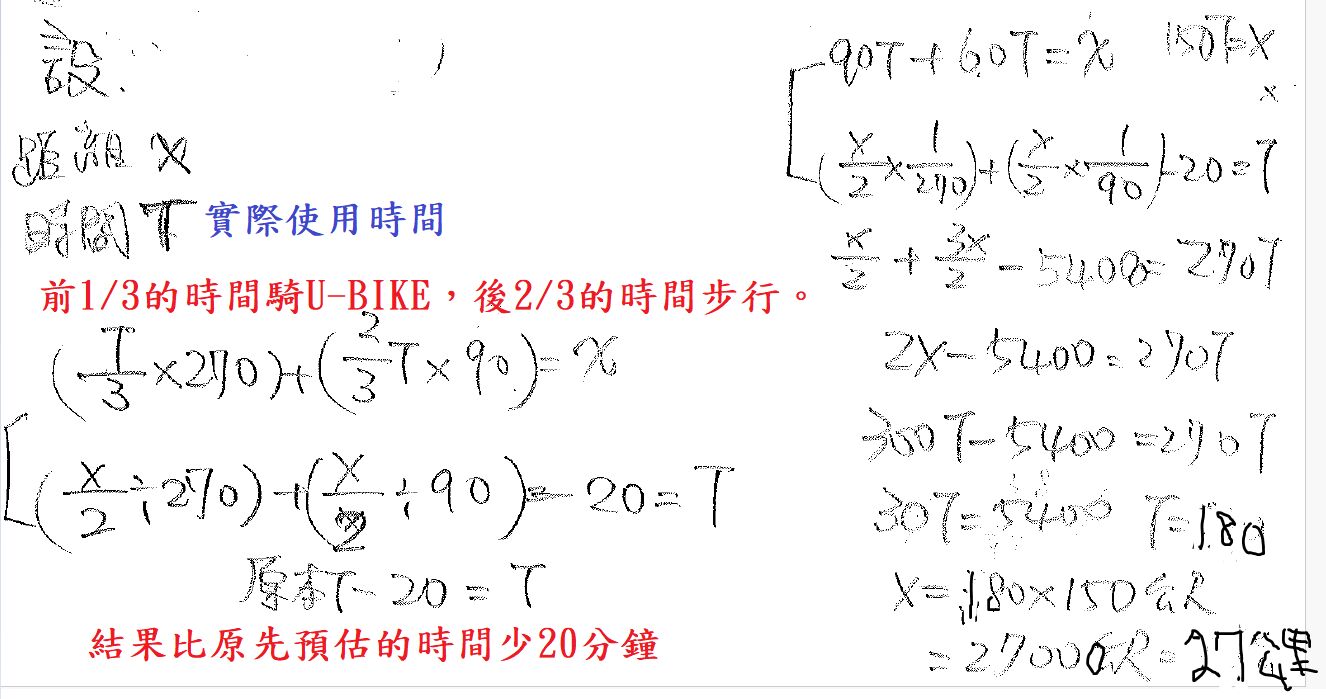 設.
距離 X
時間 T 實際使用時間
前1/3的時間騎U-BIKE，後2/3的時間步行。
(T/3×270)+(2/3T×90)=x
(X/2÷270)+(X/2÷90)-20=T
原本T-20=T
結果比原先預估的時間少20分鐘
90T+60T=x 150T=X
(X/2×1/270)+(X/2×1/90)-20=T
x/2+3x/2-5400=270T
2X-5400=270T
300T-5400=270T
30T=5400 T=180
X=180×150公尺
=27000公尺=27公里